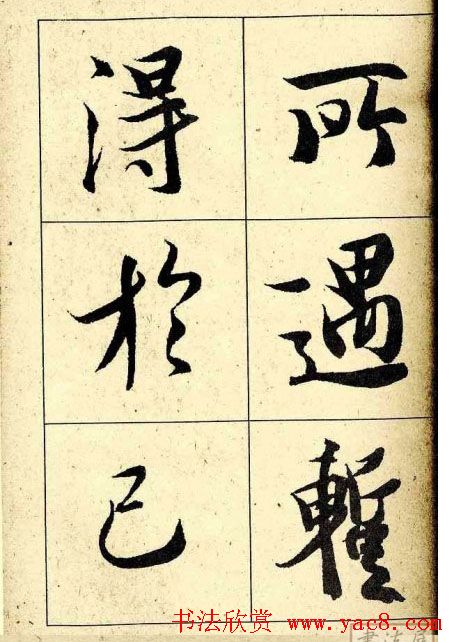 所遇蹔
得於己
书法欣赏 www.yac8.com